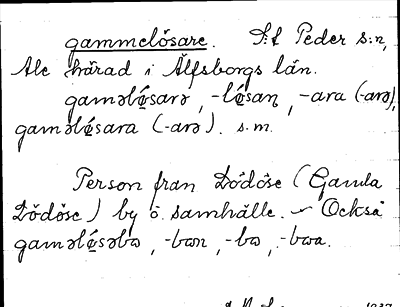 gammelösare. S:t Peder s:n,
Ale härad i Älfsborgs län.
gaməlǿsarə, -lǿsaṇ, -ara (-arə),
gaməlǿsara (-arə). s.m.
Person från Lödöse (Gamla
Lödöse) by o. samhälle. ~ Också
gaməlǿsəbω, -bωn, -bω, -bωa.